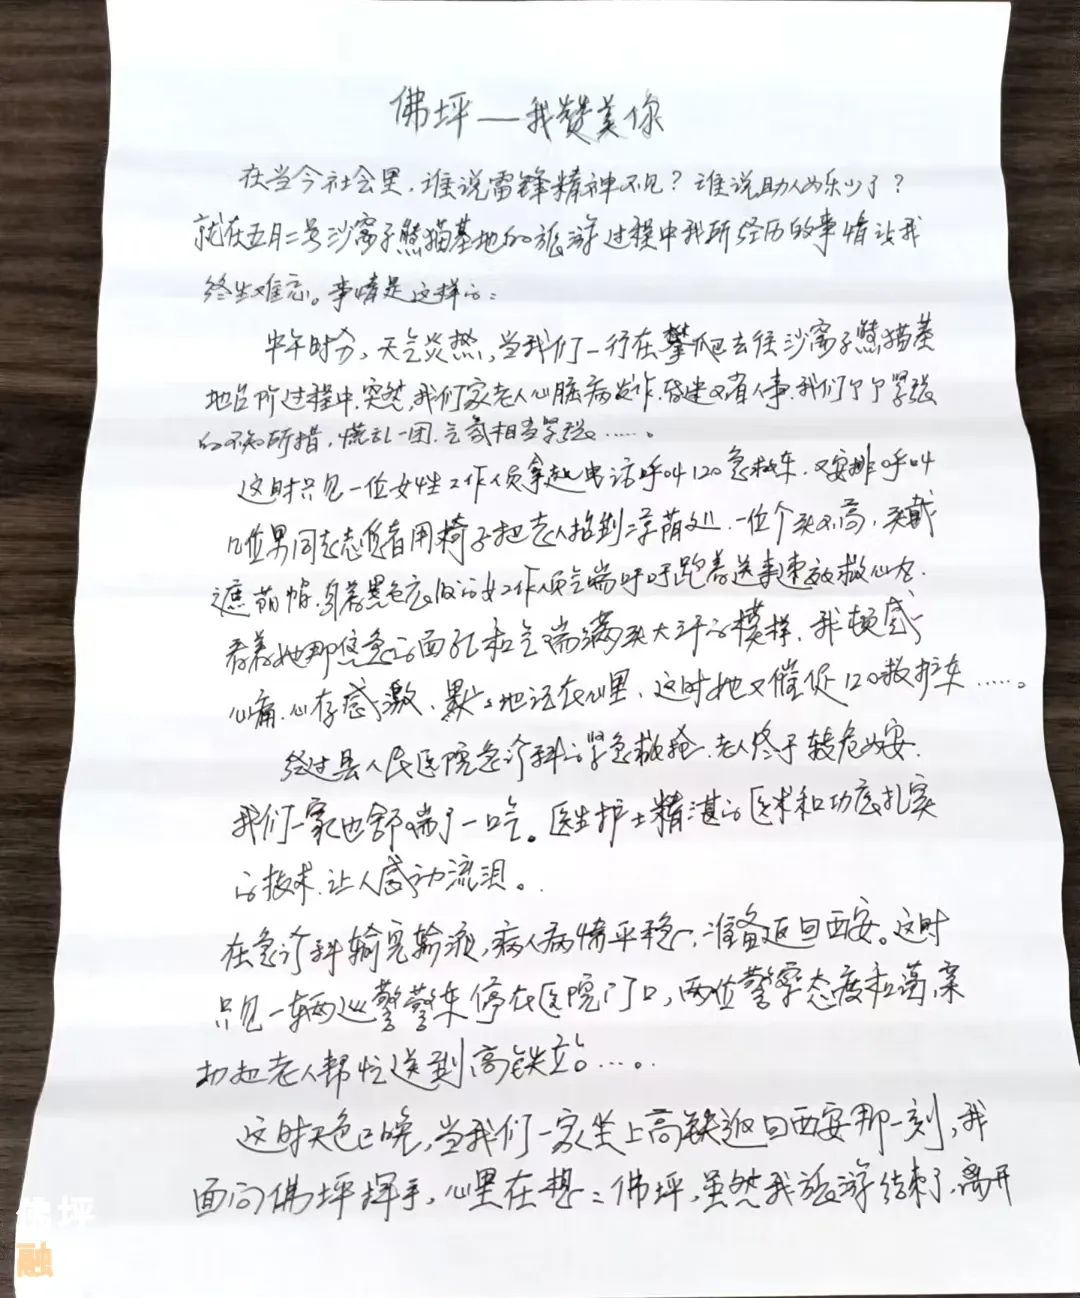 佛坪—我赞美你
在当今社会里，谁说雷锋精神不见？谁说助人为乐少了？
就在五月二号沙窝子熊猫基地的旅游过程中我所经历的事情让我
终生难忘。事情是这样的：
中午时分，天气炎热，当我们一行在攀爬去往沙窝子熊猫基
地台阶过程中，突然，我们家老人心脏病发作，昏迷不省人事，我们个个紧张
的不知所措，慌乱一团，气氛相当紧张……。
这时只见一位女性工作人员拿起电话呼叫120急救车，又安排呼叫
几位男同志 用椅子把老人抬到凉荫处，一位个头不高，头戴
遮荫帽，身着黑色衣服的女工作人员气喘吁吁跑着送来速效救心丸，
看着她那焦急的面孔和气喘满头大汗的模样，我顿感
心痛，心存感激，默默地记在心里，这时她又催促120救护车……。
经过县人民医院急诊科的紧急救抢，老人终于转危为安，
我们一家也舒喘了一口气。医生护士精湛的医术和功底扎实
的技术，让人感动流泪。
在急诊科输完输液，病人病情平稳，准备返回西安。这时
只见一辆巡警警车停在医院门口，两位警察态度和蔼，亲
切把老人帮忙送到高铁站……。
这时天色已晚，当我们一家坐上高铁返回西安那一刻，我
面向佛坪挥手，心里在想：佛坪，虽然我旅游结束了，离开
佛坪
融